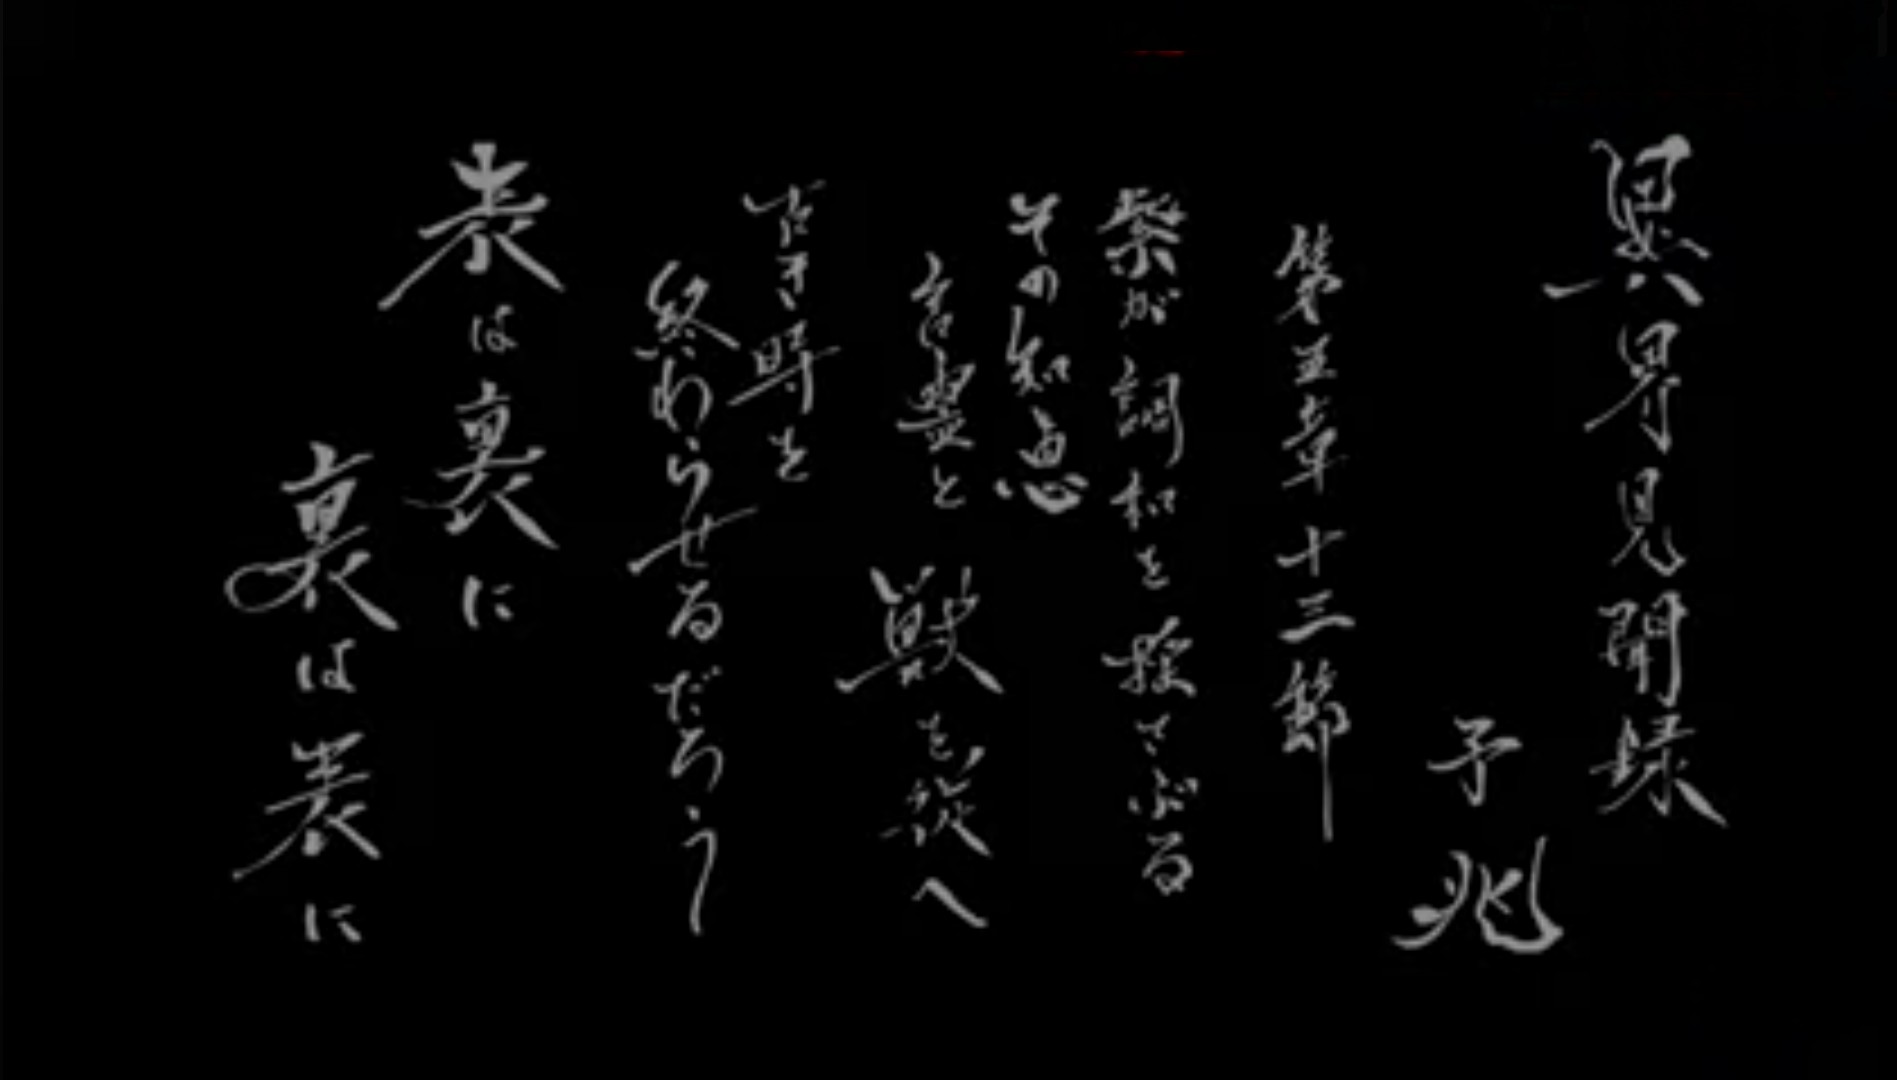 異界見聞録
予兆
第五章十三節
が調和を揺さぶる
その知恵
言霊と獣を従へ
古き時を
終わらせるだろう
表は裏に
裏は表に